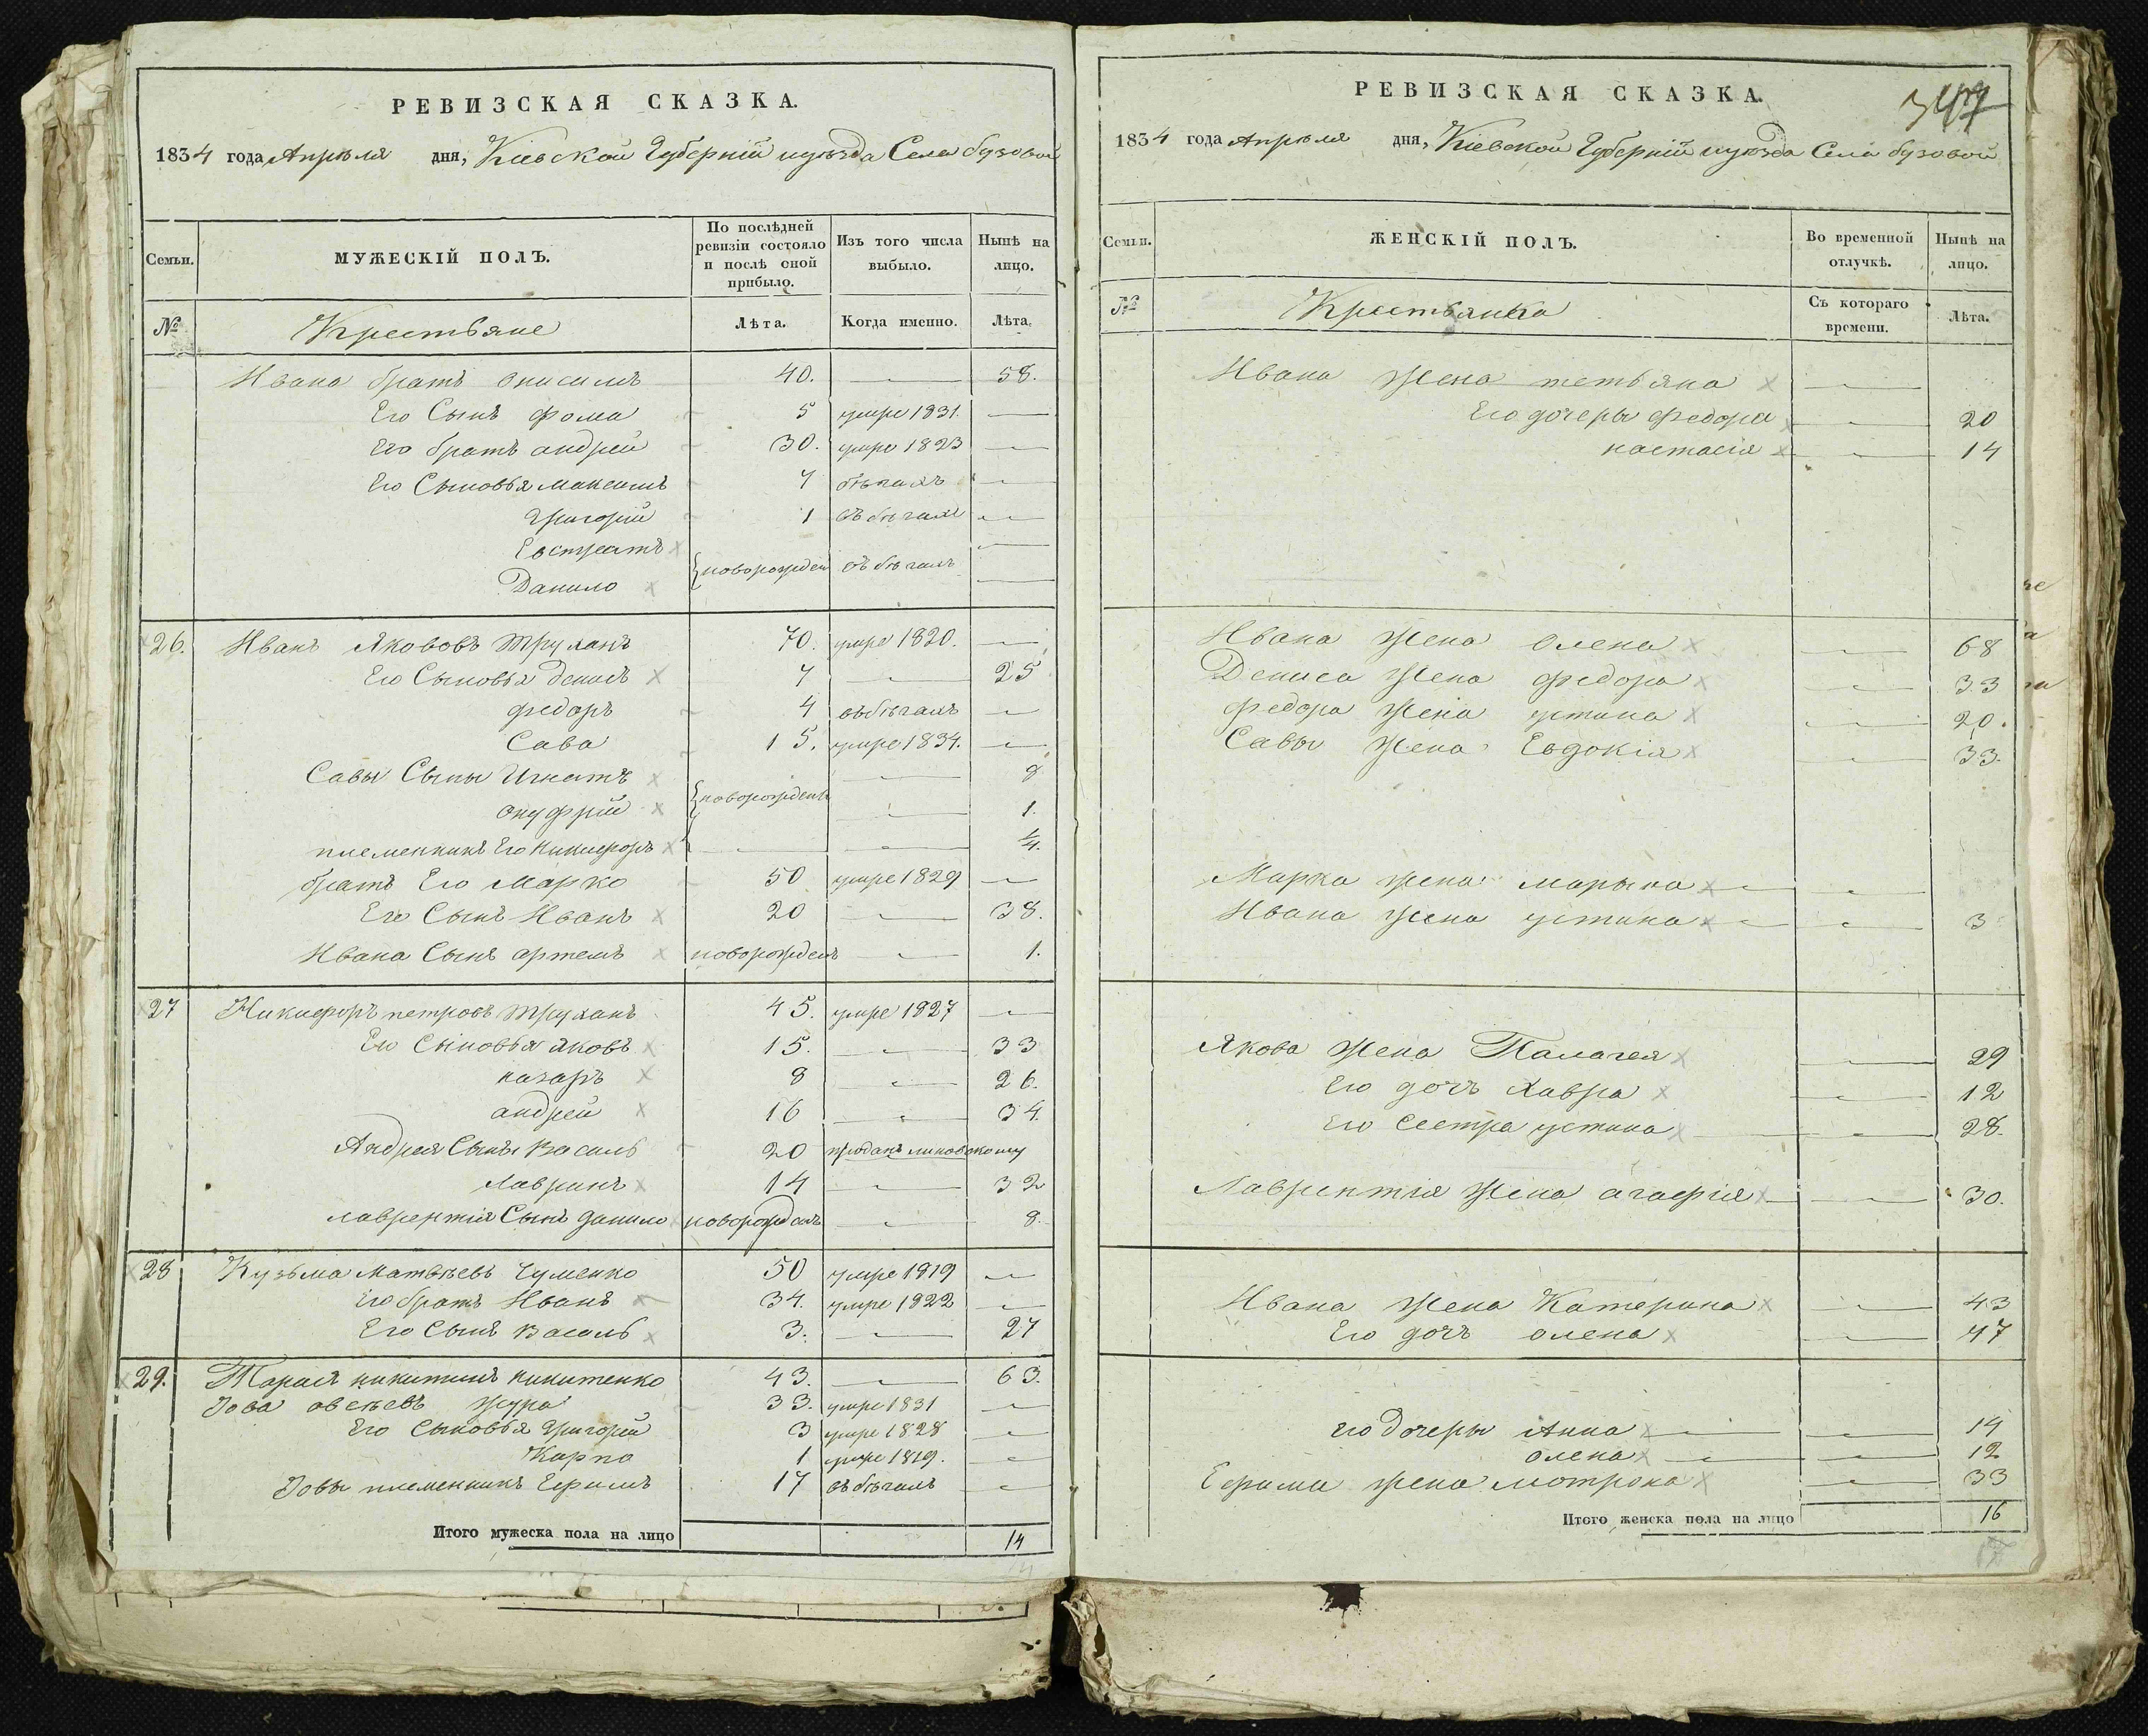 РЕВИЗСКАЯ СКАЗКА.
1834 года Апреля дня, Кіевской Губерніи и уезда Села бузовой
Семьи. МУЖЕСКІЙ ПОЛЪ. По послѣдней ревизіи состояло и послѣ оной прибыло. Изъ того числа выбыло. Нынѣ на лицо.
№ Крестьяне Лѣта. Когда именно. Лѣта.
Ивана братъ Онисимъ 40. — 58.
Его Сынъ Фома 5 умре 1831. —
Его братъ андрей 30. умре 1823 —
Его Сыновья Максимъ 7 —
Григорій 1 въ бѣгахъ —
Евстратъ —
новорожден въ бѣгахъ
Данило —
26. Иванъ Якововъ Труханъ 70. умре 1820. —
Его Сыновья денисъ 7 — 25
федоръ 4 въ бѣгахъ —
Сава 15. умре 1834. —
Савы Сыны Игнатъ — 8
новорожденъ
онуфрій — 1.
племенникъ Его Никифоръ — — 4.
братъ Его Марко 50 умре 1829 —
Его Сынъ Иванъ 20 — 38.
Ивана Сынъ артемъ новорожденъ — 1.
27 Никифоръ петровъ Труханъ 45. умре 1827 —
Его Сыновья яковъ 15. — 33
назаръ 8 — 26.
андрей 16 — 34.
Андрея Сыны Василь 20 проданъ линовскому
Лавринъ 14 — 32
лаврентія Сынъ данило новорожденъ — 8.
28 Кузьма Матвѣевъ Чуменко 50 умре 1819 —
Его братъ Иванъ 34. умре 1822 —
Его Сынъ Василь 3. — 27
29. Тарасъ никитинъ никитенко 43. — 63.
Іова овсѣевъ Жура 33. умре 1831 —
Его Сыновья Григорій 3 умре 1828 —
Карпо 1 умре 1819. —
Іовы племенникъ Ефимъ 17 въ бѣгахъ —
Итого мужеска пола на лицо 14
РЕВИЗСКАЯ СКАЗКА.
347
1834 года Апреля дня, Кіевской Губерніи и уезда Села бузовой
Семьи. ЖЕНСКІЙ ПОЛЪ. Во временной отлучкѣ. Нынѣ на лицо.
№ Крестьянка Съ котораго времени. Лѣта.
Ивана Жена тетьяна —
Его дочеры Федора — 20
настасія — 14
Ивана Жена Олена — 68
Дениса Жена федора — 33
федора Жена устина — 20.
Савы Жена Евдокія — 33.
Марка Жена марына —
Ивана Жена устина — 3
Якова Жена Палагея — 29
Его дочъ Хавра — 12
Его Сестра устина — 28.
Лаврентія Жена агафія — 30.
Ивана Жена Катерина — 43
Его дочъ олена — 47
Его дочеры Анна — 14
олена — 12
Ефима Жена мотрона — 33
Итого женска пола на лицо 16